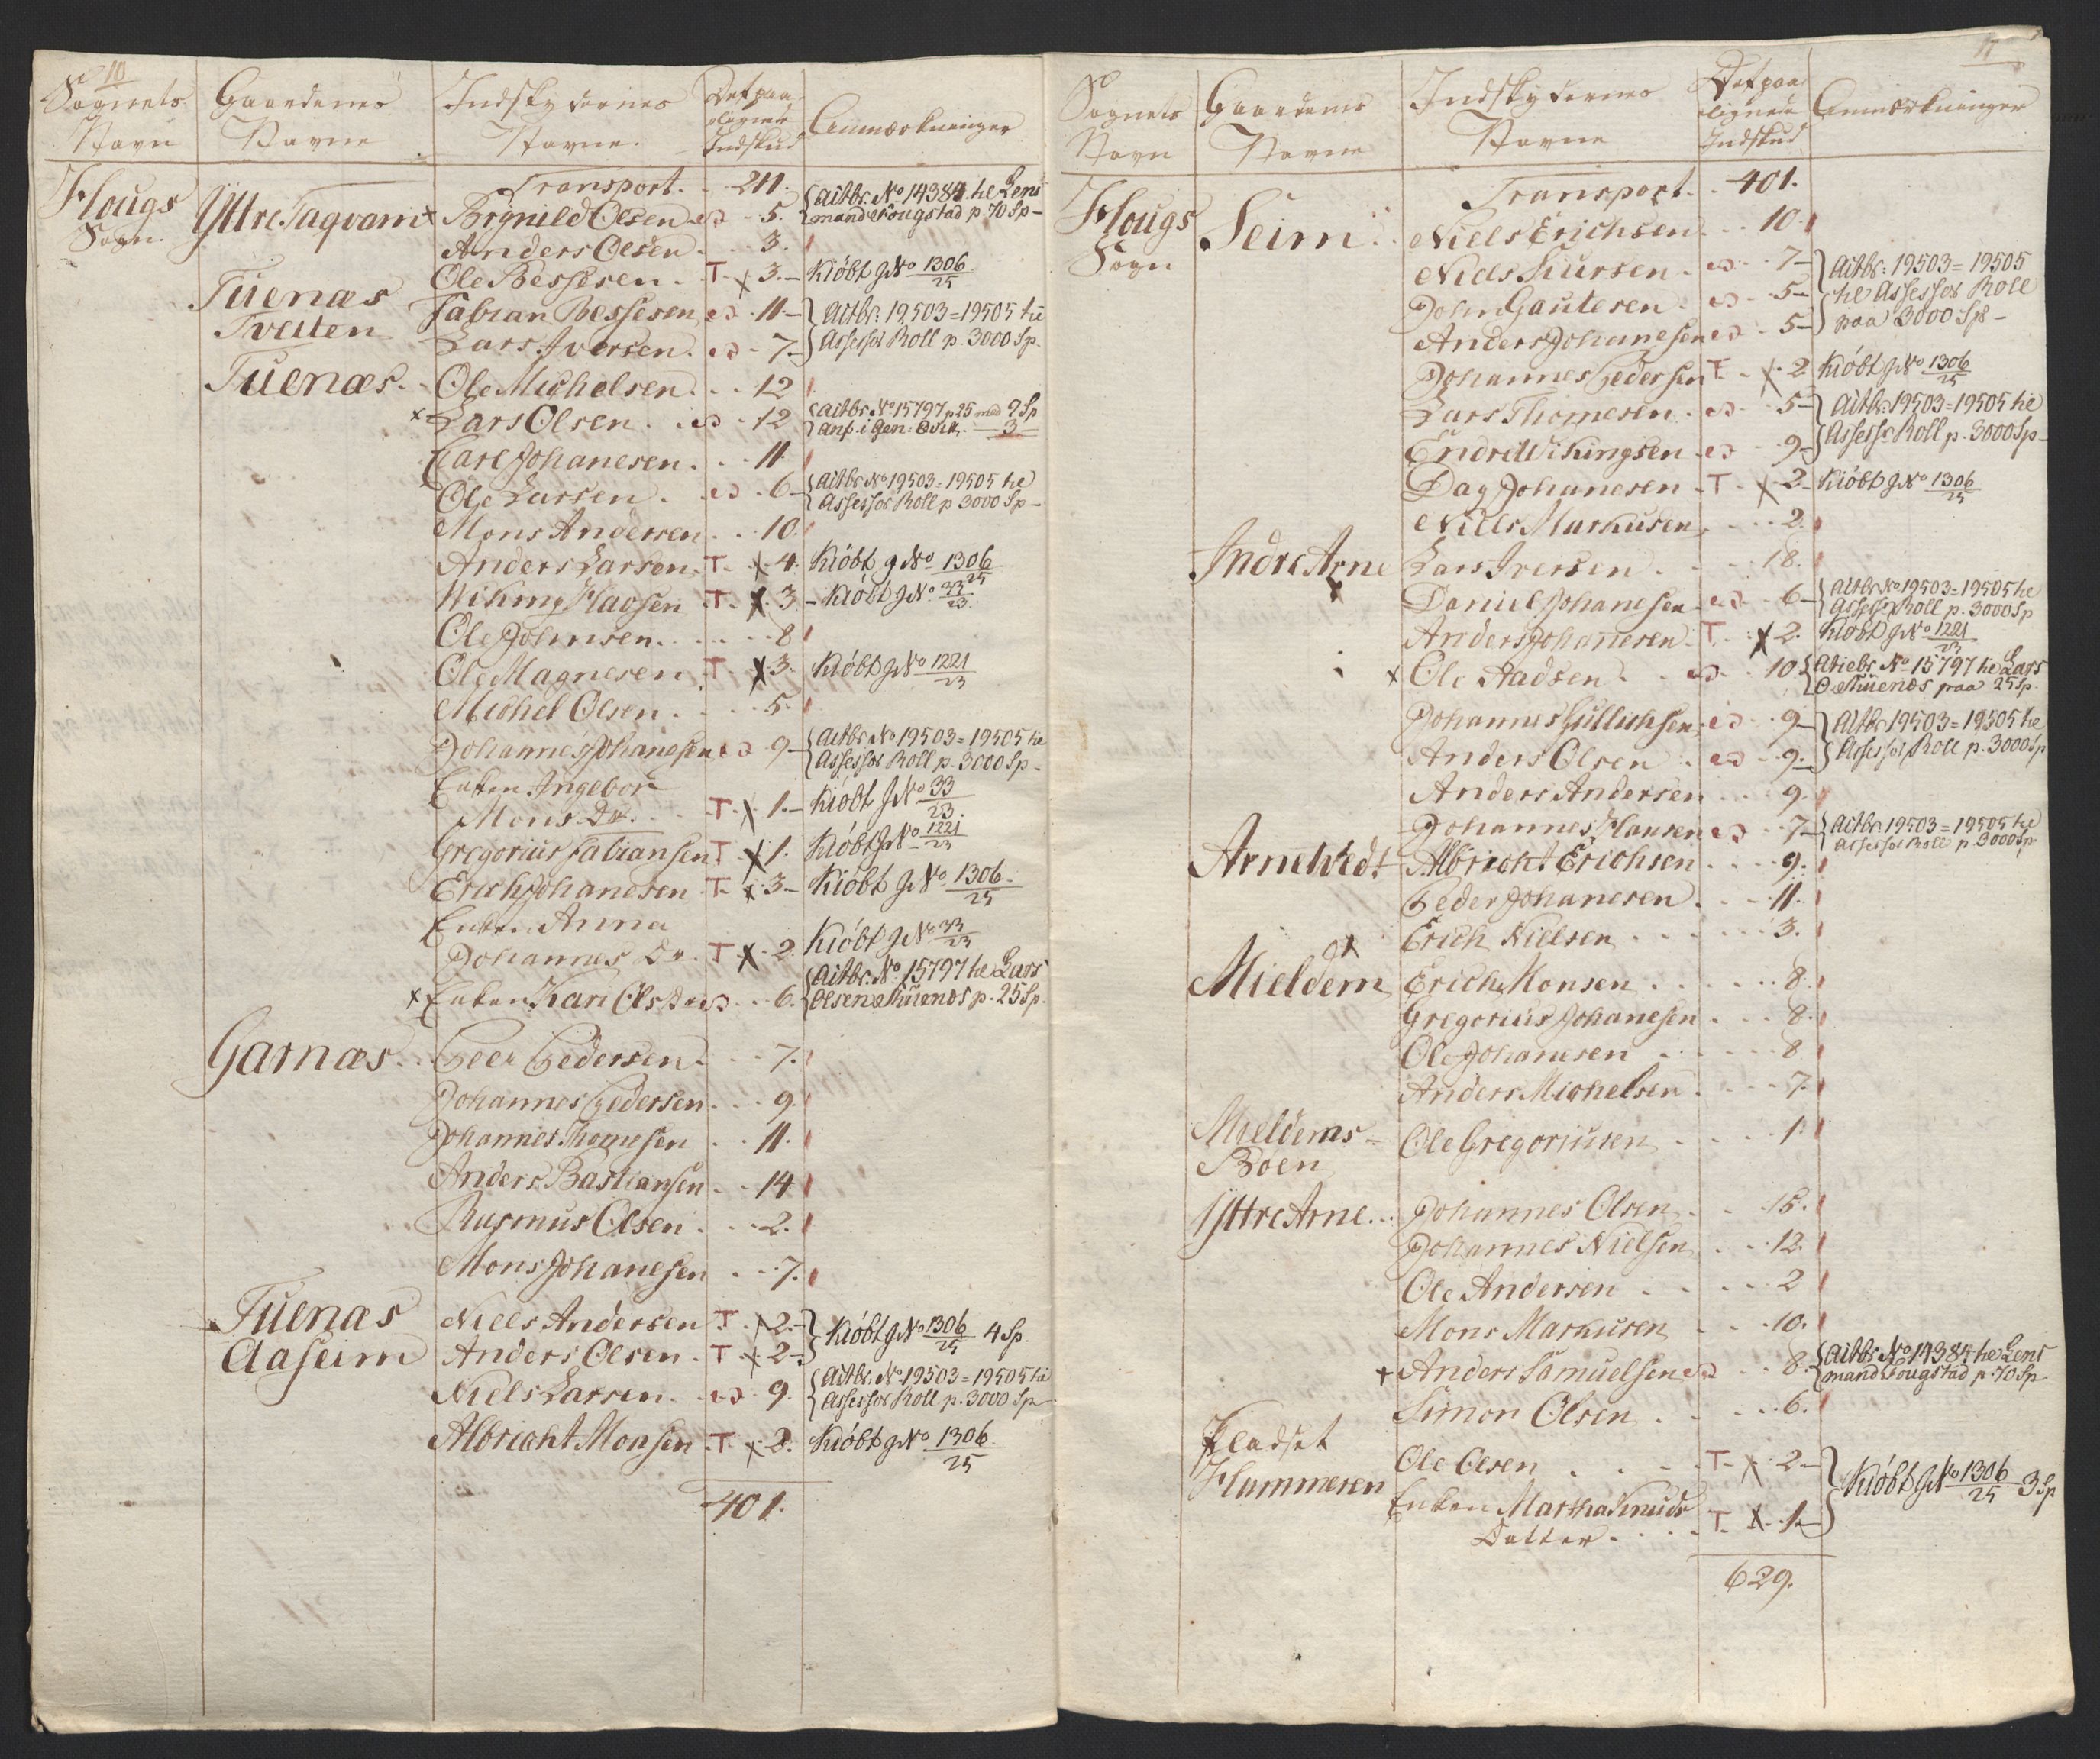 10
Sognets Gaardenes Indskydernes Det paalignede Anmærkninger
Navn Navne Navne. Indskud
Transport. 211.
Hougs Sogn. Yttre Taqvam x Brynild Olsen 5. Aitbr. No 14384 he Lensmand Hougstad p 70 Sp
Anders Olsen 3.
Ole Bessesen. T x 3. Kiöbt g No 1306/25
Tuenæs Fabian Bessesen 11 Aitbr: 19503=19505 he
Tveiten Lars Iversen. 7 Assessor Roll p. 3000 Sp.
Tuenæs. Ole Michelsen. 12
x Lars Olsen. 12 Aitbr No 15797 p 25 med 9 Sp
Anf. i Gen: 3
Carl Johanesen. 11
Ole Larsen. 6 Aitbr No 19503=19505 he Assessor Roll p 3000 Sp
Mons Andersen 10.
Anders Larsen. T x 4. Kiöbt g No 1306/25
Wiking Havsen T. x 3 Kiöbt g No 33/23.
Ole Johnsen. 8
Ole Magnesen T x 3. Kiöbt g No 1221/23
Michel Olsen. 5
Johannes Johanesen 9 Aitbr No 19503=19505 he Assessor Roll p. 3000 Sp
Enken Ingebor
Mons Dr. T. x 1. Kiöbt g No 33/23.
Gregorius Fabiansen T x 1. Kiöbt g No 1221/23
Erich Johanesen T. x 3 Kiöbt g No 1306/25
Enken Anna
Johannes Dr. T x 2 Kiöbt g No 33/23
x Enken Kari Ols Dr 6. Aitbr. No 15797 he Lars Olsen Tuenæs p. 25 Sp.
Garnæs Peer Pedersen. 7.
Johannes Pedersen 9.
Johannes Thomesen 11.
Anders Bastiansen 14
Rasmus Olsen. 2.
Mons Johanesen 7.
Tuenæs Niels Andersen T. x 2. Kiöbt g No 1306/25 4 Sp.
Aaseim Anders Olsen. T x 2
Niels Larsen. 9. Aitbr. No 19503=19505 he Assessor Roll p. 3000 Sp
Albricht Monsen T. x 2. Kiöbt g No 1306/25
401.
11
Sognets Gaardenes Indskydernes Det paalignede Anmærkninger
Navn Navne Navne Indskud
Transport. 401.
Hougs Sogn Seim Niels Erichsen 10
Niels Siursen 7 Aitbr: 19503=19505
John Gautesen 5 he Assessor Roll
Anders Johanesen 5 paa 3000 Sp
Johannes Pedersen T x 2 Kiöbt g No 1306/25
Lars Thomesen 5 Aitbr: 19503=19505 he
Endre Wikingsen 9 Assessor Roll p. 3000 Sp
Dag Johanesen T x 2 Kiöbt g No 1306/25
Niels Markusen 2.
Indre Arne Lars Iversen 18.
x Daniel Johanesen 6 Aitbr No 19503=19505 he Assessor Roll p. 3000 Sp
Anders Johanesen T. x 2. Kiöbt g No 1221/23
x Ole Aadsen 10 Atiebr No 15797 he Lars O Tuenæs paa 25 Sp.
Johannes Gullichsen 9 Aitbr 19503=19505 he
Anders Olsen 9. Assessor Roll p. 3000 Sp
Anders Andersen 9.
Johannes Hansen 7 Aitbr: 19503=19505 he Assessor Roll p 3000 Sp
Arnetvedt Albricht Erichsen 9.
Peder Johanesen 11.
Erich Nielsen 3.
Mieldem Erich Monsen 8.
Gregorius Johanesen 8.
Ole Johanesen 8
Anders Michelsen 7.
Mieldems-Boen Ole Gregoriusen 1
Yttre Arne Johannes Olsen 15.
Johannes Nielsen 12.
Ole Andersen 2
Mons Markusen 10.
x Anders Samuelsen 8. Aitbr No 14384 he Lensmand Hougstad p. 70 Sp
Simon Olsen 6.
Pladset Ole Olsen T. x 2 Kiöbt g No 1306/25 3 Sp
Hammeren Enken Martha Knuds
Datter T. x 1
629.